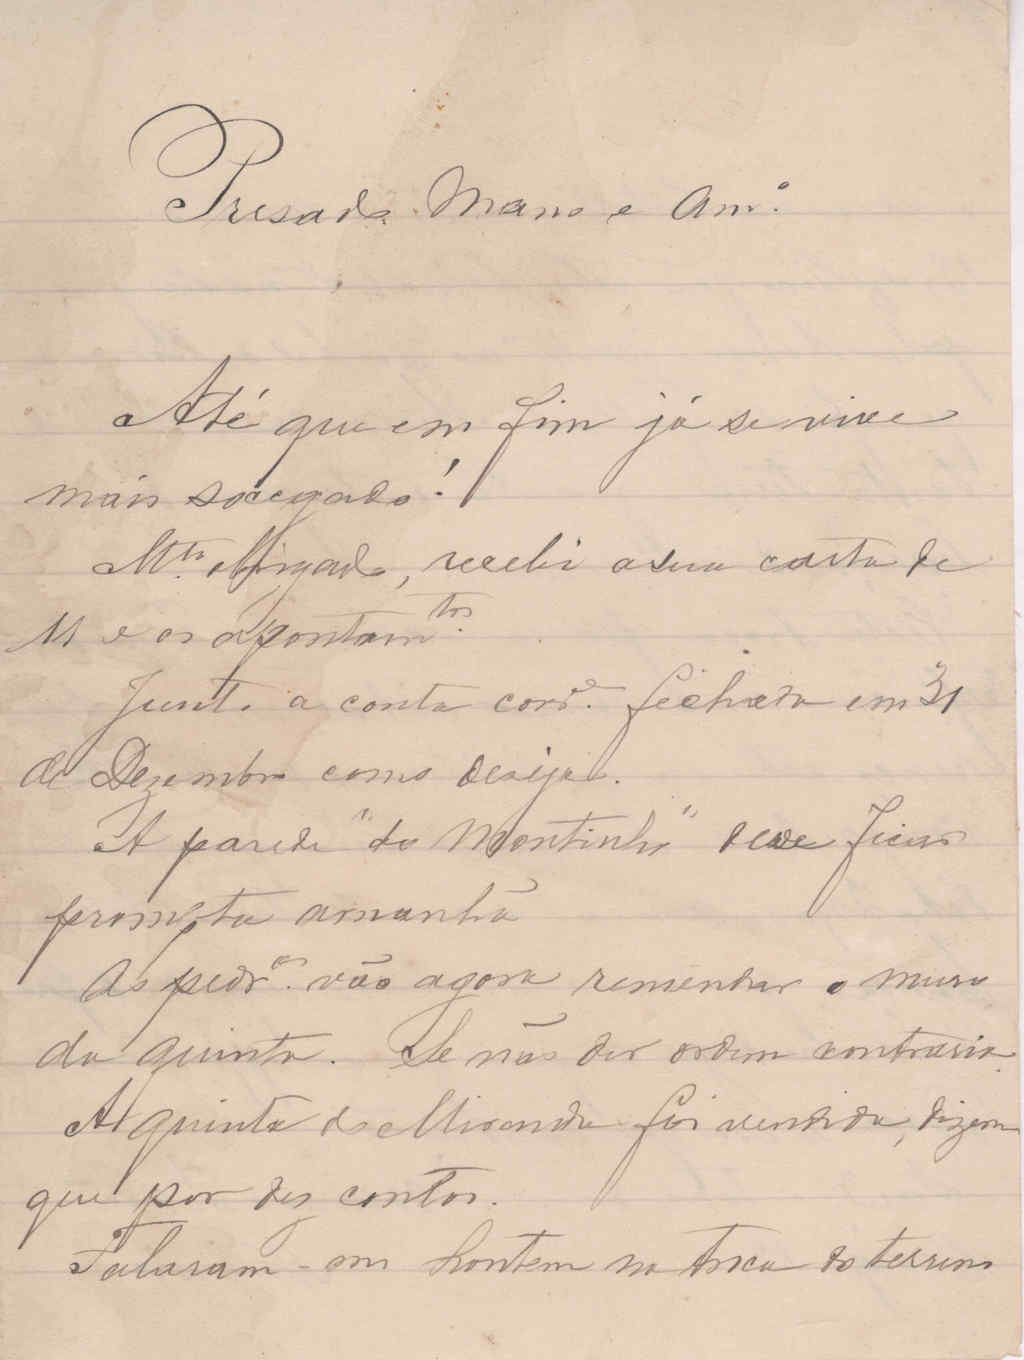 Presado Mano e Am.º
Até que em fim já se vive
mais socegado!
M.to obrigado, recebi a sua carta de
11 e os apontam.tos
Junto a conta corr.e fechada em 31
de Dezembro como deseja.
A parede "do Montinho" deve ficar
prompta amanhã
Os pedr.os vão agora remendar o muro
da quinta. Se não der ordem contraria.
A quinta do Miranda foi vendida, dizem
que por des contos.
Falaram-me hontem na troca do terreno